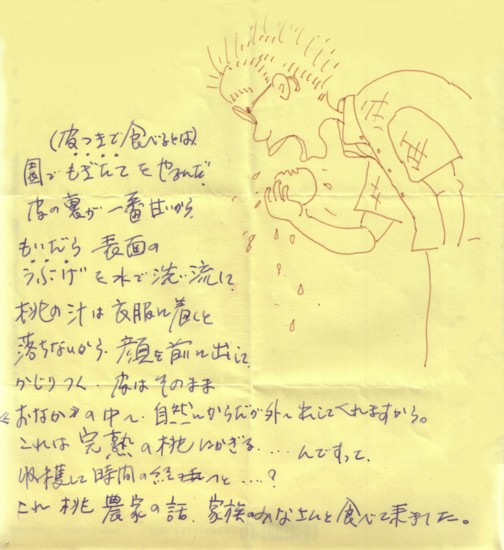 (皮つきで食べるとは)
園でもぎたてをやるんだ。
皮の裏が一番甘いから
もいだら 表面の
うぶげを水で洗い流して
桃の汁は衣服に着くと
落ちないから、顔を前に出して
かじりつく、皮はそのまま
"おなか"の中へ、自然にからだが外へ出してくれますから。
これは完熟の桃にかぎる....んですって、
収穫して時間の経つと....?
これ 桃農家の話、家族のみなさんと食べて来ました。